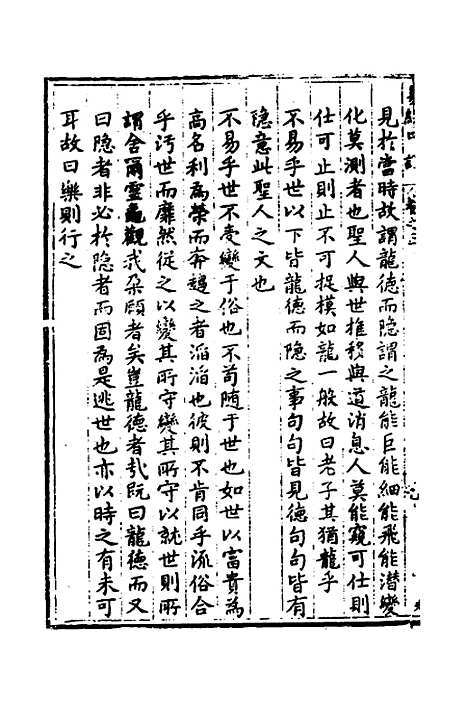 見於當時故謂龍德而隐謂之龍能巨能細能飛能潜變
化莫測者也聖人與世推移與道消息人莫能窺可仕則
仕可止則止不可捉摸如龍一般故曰老子其猶龍乎
不易乎世以下皆龍德而隐之事句句皆見德句句皆有
隐意此聖人之文也
不易乎世不变變于俗也不苟随于世也如世以富貴為
高名利為榮而奔趨之者滔滔也彼則不肯同乎流俗合
乎汚世而靡然從之以變其所守變其所守以就世則所
謂舍爾靈龜觀我朶頤者矣豈龍德者㢤既曰龍德而又
曰隐者非必於隐者而固為是逃世也亦以時之有未可
耳故曰樂則行之